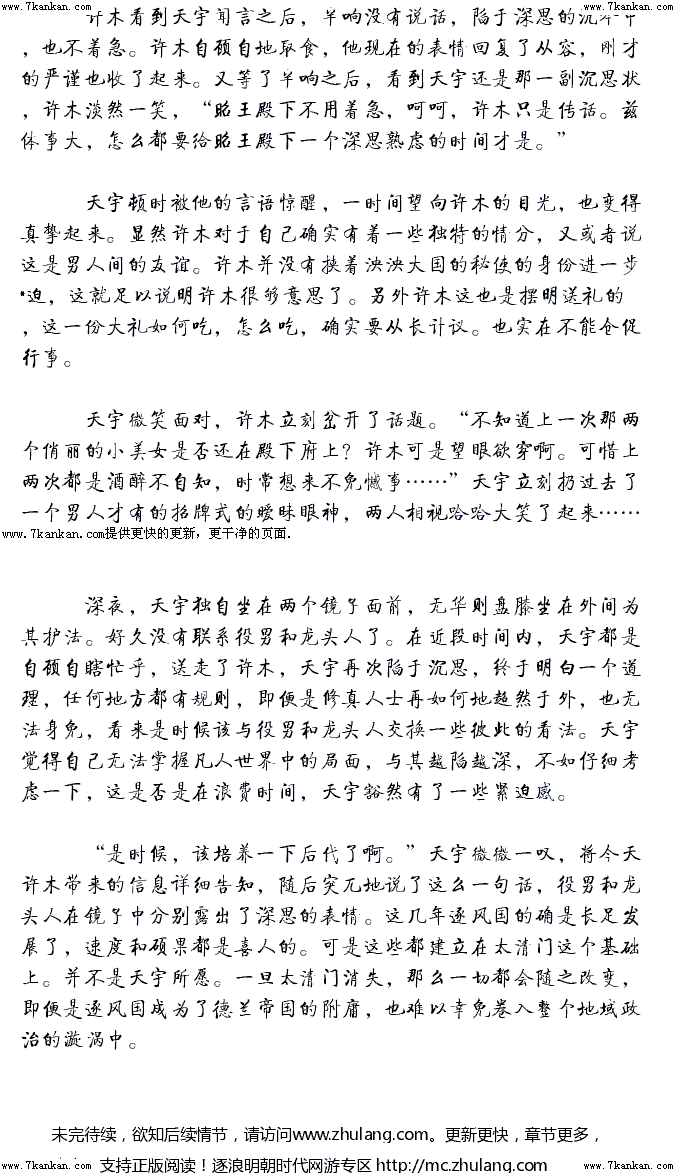 www.7kankan.com www.7kankan.com
许木看到天宇闻言之后，半响没有说话，陷于深思的沉
，也不着急。许木自顾自地取食，他现在的表情回复了从容，刚才
的严谨也收了起来。又等了半响之后，看到天宇还是那一副沉思状
，许木淡然一笑，“昭王殿下不用着急，呵呵，许木只是传话。兹
体事大，怎么都要给昭王殿下一个深思熟虑的时间才是。”
天宇顿时被他的言语惊醒，一时间望向许木的目光，也变得
真挚起来。显然许木对于自己确实有着一些独特的情分，又或者说
这是男人间的友谊。许木并没有挟着泱泱大国的秘使的身份进一步
*迫，这就足以说明许木很够意思了。另外许木这也是摆明送礼的
，这一份大礼如何吃，怎么吃，确实要从长计议。也实在不能仓促
行事。
天宇微笑面对，许木立刻岔开了话题。“不知道上一次那两
个俏丽的小美女是否还在殿下府上？许木可是望眼欲穿啊。可惜上
两次都是酒醉不自知，时常想来不免憾事……”天宇立刻扔过去了
一个男人才有的招牌式的暧昧眼神，两人相视哈哈大笑了起来……
www.7kankan.com提供更快的更新，更干净的页面.
深夜，天宇独自坐在两个镜子面前，无华则盘膝坐在外间为
其护法。好久没有联系役男和龙头人了。在近段时间内，天宇都是
自顾自瞎忙乎，送走了许木，天宇再次陷于沉思，终于明白一个道
理，任何地方都有规则，即便是修真人士再如何地超然于外，也无
法身免，看来是时候该与役男和龙头人交换一些彼此的看法。天宇
觉得自己无法掌握凡人世界中的局面，与其越陷越深，不如仔细考
虑一下，这是否是在浪费时间，天宇豁然有了一些紧迫感。
“是时候，该培养一下后代了啊。”天宇微微一叹，将今天
许木带来的信息详细告知，随后突兀地说了这么一句话，役男和龙
头人在镜子中分别露出了深思的表情。这几年逐风国的确是长足发
展了，速度和硕果都是喜人的。可是这些都建立在太清门这个基础
上。并不是天宇所愿。一旦太清门消失，那么一切都会随之改变，
即便是逐风国成为了德兰帝国的附庸，也难以幸免卷入整个地域政
治的漩涡中。
未完待续，欲知后续情节，请访问www.zhulang.com。更新更快，章节更多，
www.7kankan.com 支持正版阅读！逐浪明朝时代网游专区 http://mc.zhulang.com www.7kankan.com